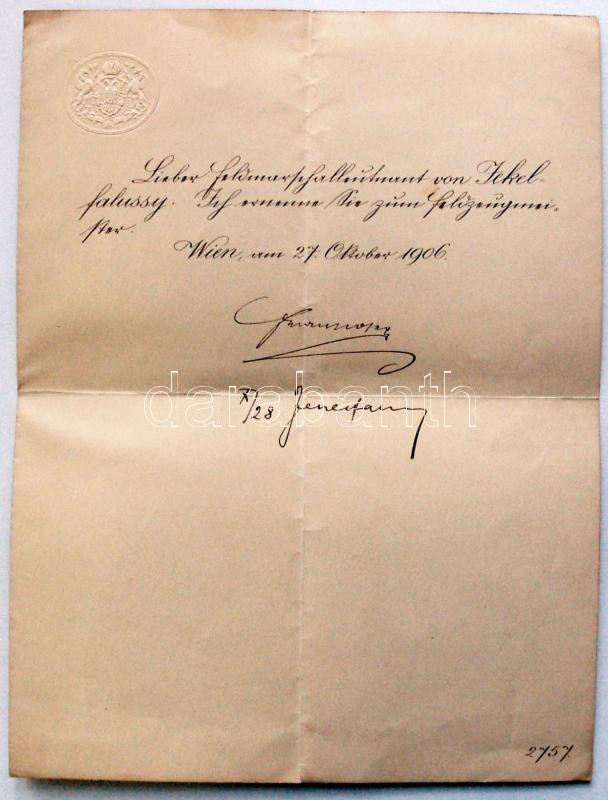 Lieber Feldmarschalleutnant von Jekel-
falussy. Ich ernenne Sie zum Feldzeugmei-
ster.
Wien, am 27. Oktober 1906.
Franz Joseph
darabanth
X/28
2757.